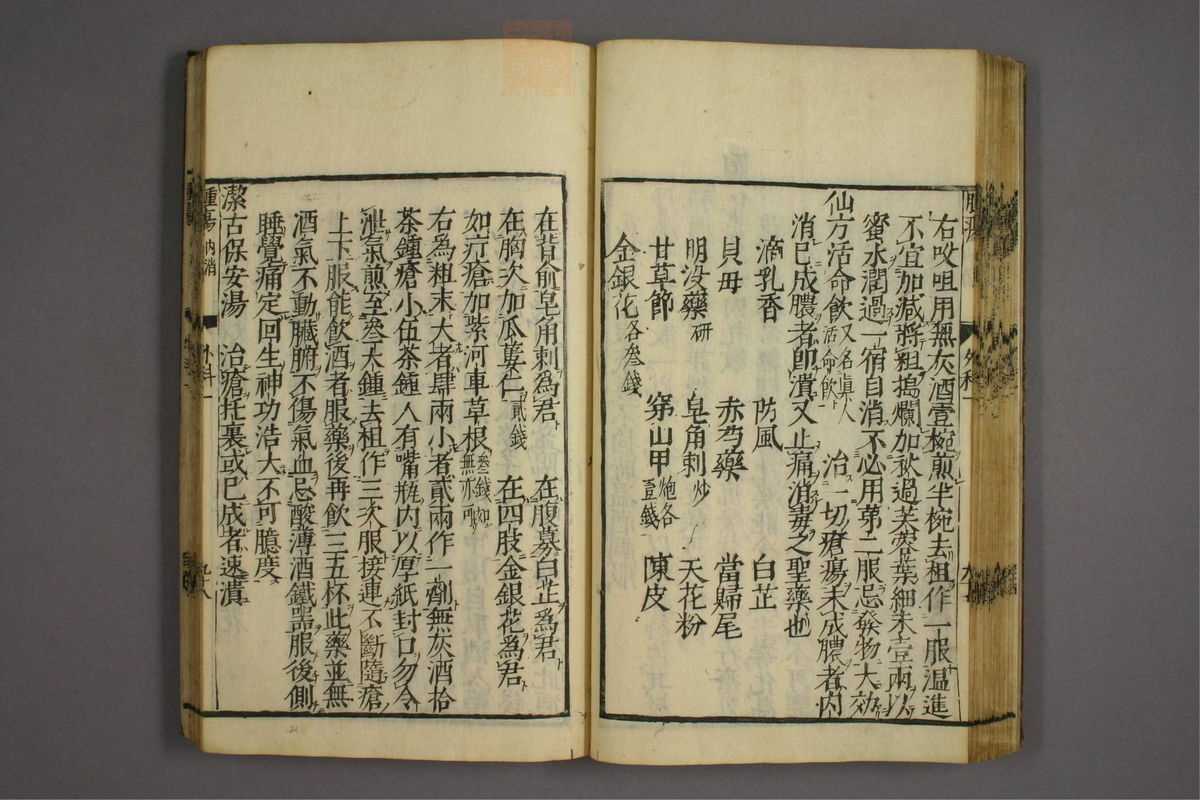 右㕮咀用無灰酒壹椀煎半椀去柤作一服温進
不宜加減將柤搗爛加秋過芙蓉葉細末壹兩以
蜜水潤過一宿自消不必用第二服忌發物大効
仙方活命飲 又名眞人活命飲 治一切瘡瘍未成膿者内
消已成膿者即潰又止痛消毒之聖藥也
滴乳香 防風 白芷
貝母 赤芍藥 當歸尾
明没藥 研 皂角刺 炒 天花粉
甘草節 穿山甲 炮各壹錢 陳皮
金銀花 各叄錢
在背俞皂角刺爲君 在腹募白芷爲君
在胸次加瓜蔞仁 貳錢 在四肢金銀花爲君
如疔瘡加紫河車草根 叄錢如無亦可
右爲粗末大者肆兩小者貳兩作一劑無灰酒拾
茶鍾瘡小伍茶鍾人有嘴瓶内以厚紙封口勿令
泄氣煎至叄大鍾去柤作三次服接連不斷隨瘡
上下服能飲酒者服藥後再飲三五杯此藥並無
酒氣不動臟腑不傷氣血忌酸薄酒鐵器服後側
睡覺痛定回生神功浩大不可臆度
潔古保安湯 治瘡托裏或已成者速潰
腫瘍 内消 外科一 五十八